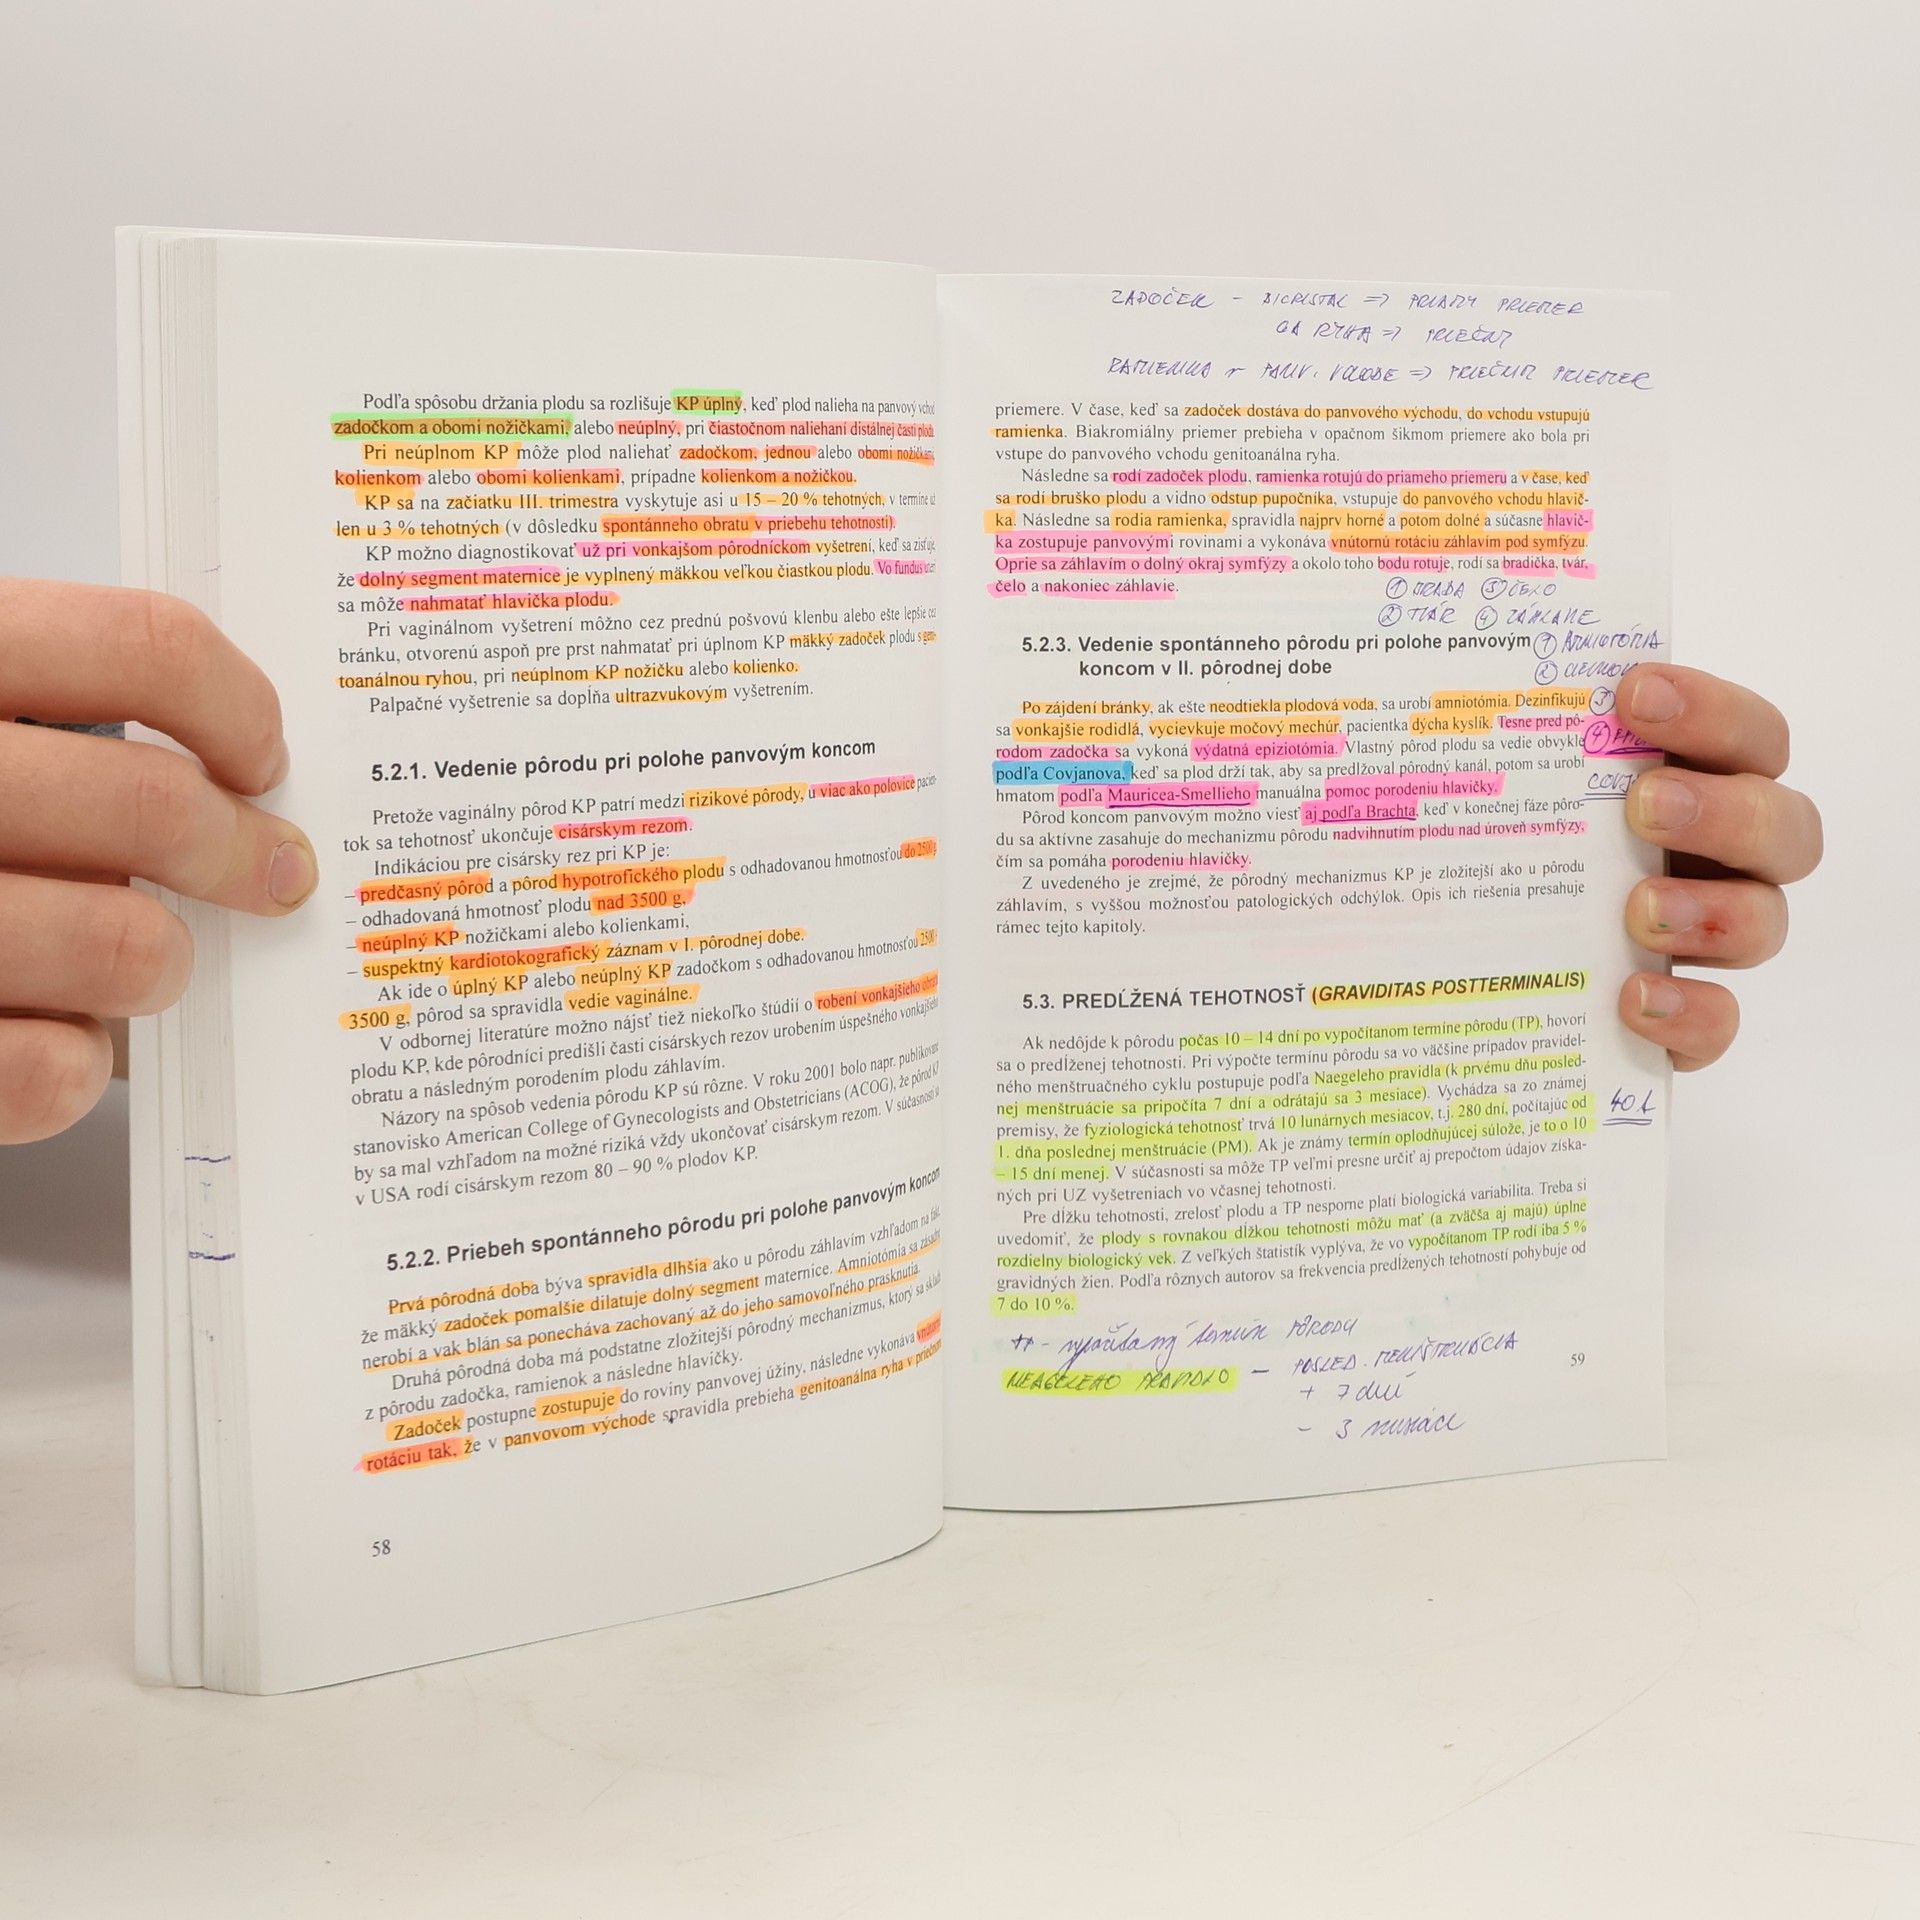 Podľa spôsobu držania plodu sa rozlišuje KP úplný, keď plod nalieha na panvový
zadočkom a obomi nožičkami, alebo neúplný, pri čiastočnom naliehaní distálnej časti plodu.
Pri neúplnom KP môže plod naliehať zadočkom, jednou alebo obomi nožičkami,
kolienkom alebo obomi kolienkami, prípadne kolienkom a nožičkou.
KP sa na začiatku III. trimestra vyskytuje asi u 15 – 20 % tehotných, v termíne
len u 3 % tehotných (v dôsledku spontánneho obratu v priebehu tehotnosti).
KP možno diagnostikovať už pri vonkajšom pôrodníckom vyšetrení, keď sa zisťuje,
že dolný segment maternice je vyplnený mäkkou veľkou čiastkou plodu. Vo fundus
sa môže nahmatať hlavička plodu.
Pri vaginálnom vyšetrení môžno cez prednú pošvovú klenbu alebo ešte lepšie cez
bránku, otvorenú aspoň pre prst nahmatať pri úplnom KP mäkký zadoček plodu s geni-
toanálnou ryhou, pri neúplnom KP nožičku alebo kolienko.
Palpačné vyšetrenie sa dopĺňa ultrazvukovým vyšetrením.
5.2.1. Vedenie pôrodu pri polohe panvovým koncom
Pretože vaginálny pôrod KP patrí medzi rizikové pôrody, u viac ako polovice pacien-
tok sa tehotnosť ukončuje cisárskym rezom.
Indikáciou pre cisársky rez pri KP je:
– predčasný pôrod a pôrod hypotrofického plodu s odhadovanou hmotnosťou do 2500 g
– odhadovaná hmotnosť plodu nad 3500 g,
– neúplný KP nožičkami alebo kolienkami,
– suspektný kardiotokografický záznam v I. pôrodnej dobe.
Ak ide o úplný KP alebo neúplný KP zadočkom s odhadovanou hmotnosťou 2500
3500 g, pôrod sa spravidla vedie vaginálne.
V odbornej literatúre možno nájsť tiež niekoľko štúdií o robení vonkajšieho obratu
plodu KP, kde pôrodníci predišli časti cisárskych rezov urobením úspešného vonkajšieho
obratu a následným porodením plodu záhlavím.
Názory na spôsob vedenia pôrodu KP sú rôzne. V roku 2001 bolo napr. publikované
stanovisko American College of Gynecologists and Obstetricians (ACOG), že pôrod KP
by sa mal vzhľadom na možné riziká vždy ukončovať cisárskym rezom. V súčasnosti sa
v USA rodí cisárskym rezom 80 – 90 % plodov KP.
5.2.2. Priebeh spontánneho pôrodu pri polohe panvovým koncom
Prvá pôrodná doba býva spravidla dlhšia ako u pôrodu záhlavím vzhľadom na fakt,
že mäkký zadoček pomalšie dilatuje dolný segment maternice. Amniotómia sa zásadne
nerobí a vak blán sa ponecháva zachovaný až do jeho samovoľného prasknutia.
Druhá pôrodná doba má podstatne zložitejší pôrodný mechanizmus, ktorý sa skladá
z pôrodu zadočka, ramienok a následne hlavičky.
Zadoček postupne zostupuje do roviny panvovej úžiny, následne vykonáva vnútornú
rotáciu tak, že v panvovom východe spravidla prebieha genitoanálna ryha v priečnom
58
ZADOČEK – BICRISTAL => PRIAMY PRIEMER
GA RYHA => PRIEČNY
RAMIENKA V PANV. VCHODE => PRIEČNY PRIEMER
priemere. V čase, keď sa zadoček dostáva do panvového východu, do vchodu vstupujú
ramienka. Biakromiálny priemer prebieha v opačnom šikmom priemere ako bola pri
vstupe do panvového vchodu genitoanálna ryha.
Následne sa rodí zadoček plodu, ramienka rotujú do priameho priemeru a v čase, keď
sa rodí bruško plodu a vidno odstup pupočníka, vstupuje do panvového vchodu hlavič-
ka. Následne sa rodia ramienka, spravidla najprv horné a potom dolné a súčasne hlavič-
ka zostupuje panvovými rovinami a vykonáva vnútornú rotáciu záhlavím pod symfýzu.
Oprie sa záhlavím o dolný okraj symfýzy a okolo toho bodu rotuje, rodí sa bradička, tvár,
čelo a nakoniec záhlavie.
① BRADA ③ ČELO
② TVÁR ④ ZÁHLAVIE
5.2.3. Vedenie spontánneho pôrodu pri polohe panvovým
koncom v II. pôrodnej dobe
① AMNIOTÓMIA
②
Po zájdení bránky, ak ešte neodtiekla plodová voda, sa urobí amniotómia. Dezinfikujú
③
sa vonkajšie rodidlá, vycievkuje močový mechúr, pacientka dýcha kyslík. Tesne pred pô-
④
rodom zadočka sa vykoná výdatná epiziotómia. Vlastný pôrod plodu sa vedie obvykle
podľa Covjanova, keď sa plod drží tak, aby sa predlžoval pôrodný kanál, potom sa urobí
hmatom podľa Mauricea-Smellieho manuálna pomoc porodeniu hlavičky.
Pôrod koncom panvovým možno viesť aj podľa Brachta, keď v konečnej fáze pôro-
du sa aktívne zasahuje do mechanizmu pôrodu nadvihnutím plodu nad úroveň symfýzy,
čím sa pomáha porodeniu hlavičky.
Z uvedeného je zrejmé, že pôrodný mechanizmus KP je zložitejší ako u pôrodu
záhlavím, s vyššou možnosťou patologických odchýlok. Opis ich riešenia presahuje
rámec tejto kapitoly.
5.3. PREDĹŽENÁ TEHOTNOSŤ (GRAVIDITAS POSTTERMINALIS)
Ak nedôjde k pôrodu počas 10 – 14 dní po vypočítanom termíne pôrodu (TP), hovorí
sa o predĺženej tehotnosti. Pri výpočte termínu pôrodu sa vo väčšine prípadov pravidel-
ného menštruačného cyklu postupuje podľa Naegeleho pravidla (k prvému dňu posled-
nej menštruácie sa pripočíta 7 dní a odrátajú sa 3 mesiace). Vychádza sa zo známej
premisy, že fyziologická tehotnosť trvá 10 lunárnych mesiacov, t.j. 280 dní, počítajúc od
1. dňa poslednej menštruácie (PM). Ak je známy termín oplodňujúcej súlože, je to o 10
– 15 dní menej. V súčasnosti sa môže TP veľmi presne určiť aj prepočtom údajov získa-
ných pri UZ vyšetreniach vo včasnej tehotnosti.
Pre dĺžku tehotnosti, zrelosť plodu a TP nesporne platí biologická variabilita. Treba si
uvedomiť, že plody s rovnakou dĺžkou tehotnosti môžu mať (a zväčša aj majú) úplne
rozdielny biologický vek. Z veľkých štatistík vyplýva, že vo vypočítanom TP rodí iba 5 %
gravidných žien. Podľa rôznych autorov sa frekvencia predĺžených tehotností pohybuje od
7 do 10 %.
TP - vypočítaný termín PÔRODU
NEAGELEHO PRAVIDLO – POSLED. MENŠTRUÁCIA
+ 7 dní
– 3 mesiace
59